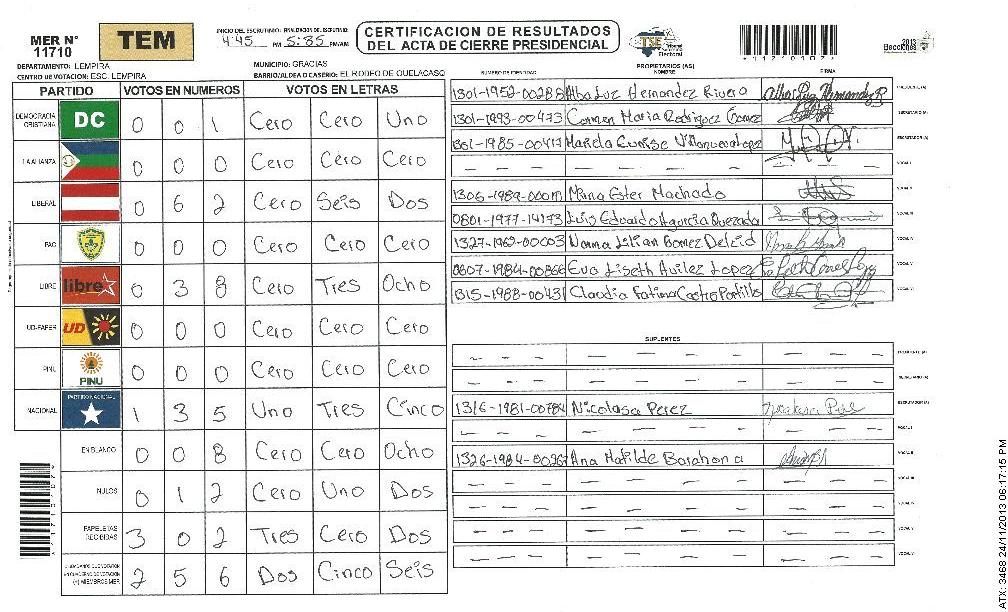 MER N° 11710
TEM
INICIO DEL ESCRUTINIO: FINALIZACION DEL ESCRUTINIO:
4:45 PM 5:85 PM/AM
CERTIFICACION DE RESULTADOS
DEL ACTA DE CIERRE PRESIDENCIAL
TSE Tribunal Supremo Electoral
2013 Elecciones
DEPARTAMENTO: LEMPIRA
MUNICIPIO: GRACIAS
CENTRO DE VOTACION: ESC. LEMPIRA
BARRIO/ALDEA O CASERIO: EL RODEO DE QUELACASQ
PARTIDO VOTOS EN NUMEROS VOTOS EN LETRAS
DEMOCRACIA CRISTIANA DC 0 0 1 Cero Cero Uno
LA ALIANZA 0 0 0 Cero Cero Cero
LIBERAL 0 6 2 Cero Seis Dos
PAC 0 0 0 Cero Cero Cero
LIBRE libre 0 3 8 Cero Tres Ocho
UD-FAPER UD 0 0 0 Cero Cero Cero
PINU PINU 0 0 0 Cero Cero Cero
NACIONAL PARTIDO NACIONAL 1 3 5 Uno Tres Cinco
EN BLANCO 0 0 8 Cero Cero Ocho
NULOS 0 1 2 Cero Uno Dos
PAPELETAS RECIBIDAS 3 0 2 Tres Cero Dos
(+) MIEMBROS MER 2 5 6 Dos Cinco Seis
PROPIETARIOS (AS)
NUMERO DE IDENTIDAD NOMBRE FIRMA
1301-1952-00288 Alba Luz Hernandez Rivera PRESIDENTE (A)
1301-1993-00473 Carmen Maria Rodriguez Gomez SECRETARIO (A)
1301-1985-00417 Mariela Eunise Villanueva Lopez ESCRUTADOR (A)
— — — — — — — — — VOCAL I
1306-1989-00017 Mirna Ester Machado VOCAL II
0801-1977-14173 Luis Eduardo Agurcia Quezada VOCAL III
1327-1962-00003 Norma Lilian Gomez Delcid VOCAL IV
0607-1984-00866 Eva Liseth Avilez Lopez VOCAL V
1315-1988-00431 Claudia Fatima Castro Portillo VOCAL VI
SUPLENTES
— — — — — — — — — PRESIDENTE (A)
— — — — — — — — — SECRETARIO (A)
1316-1981-00784 Nicolasa Perez ESCRUTADOR (A)
— — — — — — — — — VOCAL I
1326-1984-00267 Ana Matilde Barahona VOCAL II
— — — — — — — — — VOCAL III
— — — — — — — — — VOCAL IV
— — — — — — — — — VOCAL V
— — — — — — — — — VOCAL VI
ATX: 3468 24/11/2013 06:17:15 PM